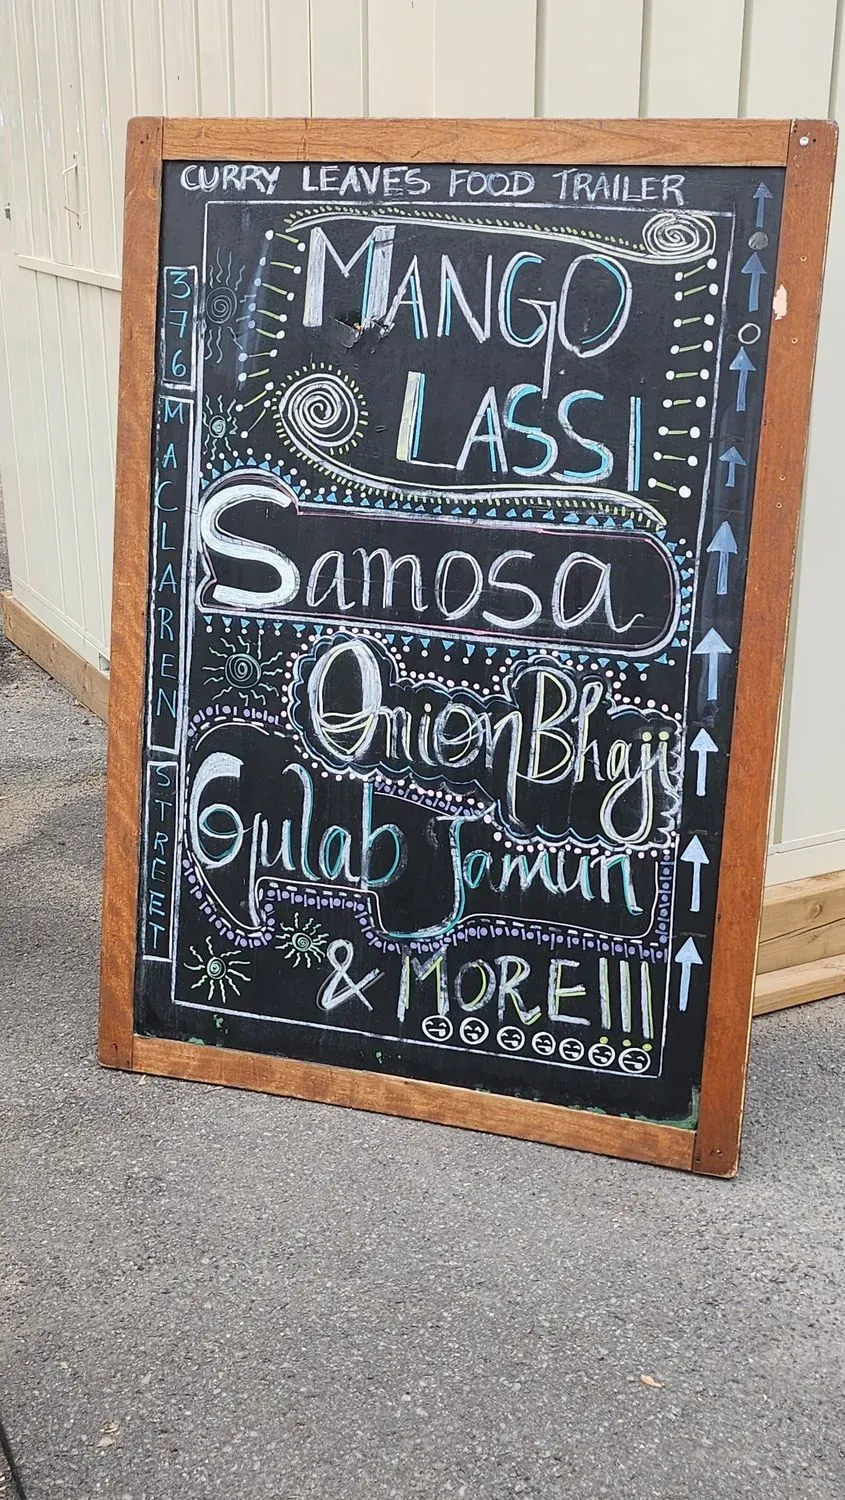 CURRY LEAVES FOOD TRAILER
376 MACLAREN STREET
MANGO
LASSI
Samosa
Onion Bhaji
Gulab Jamun
& MORE!!!